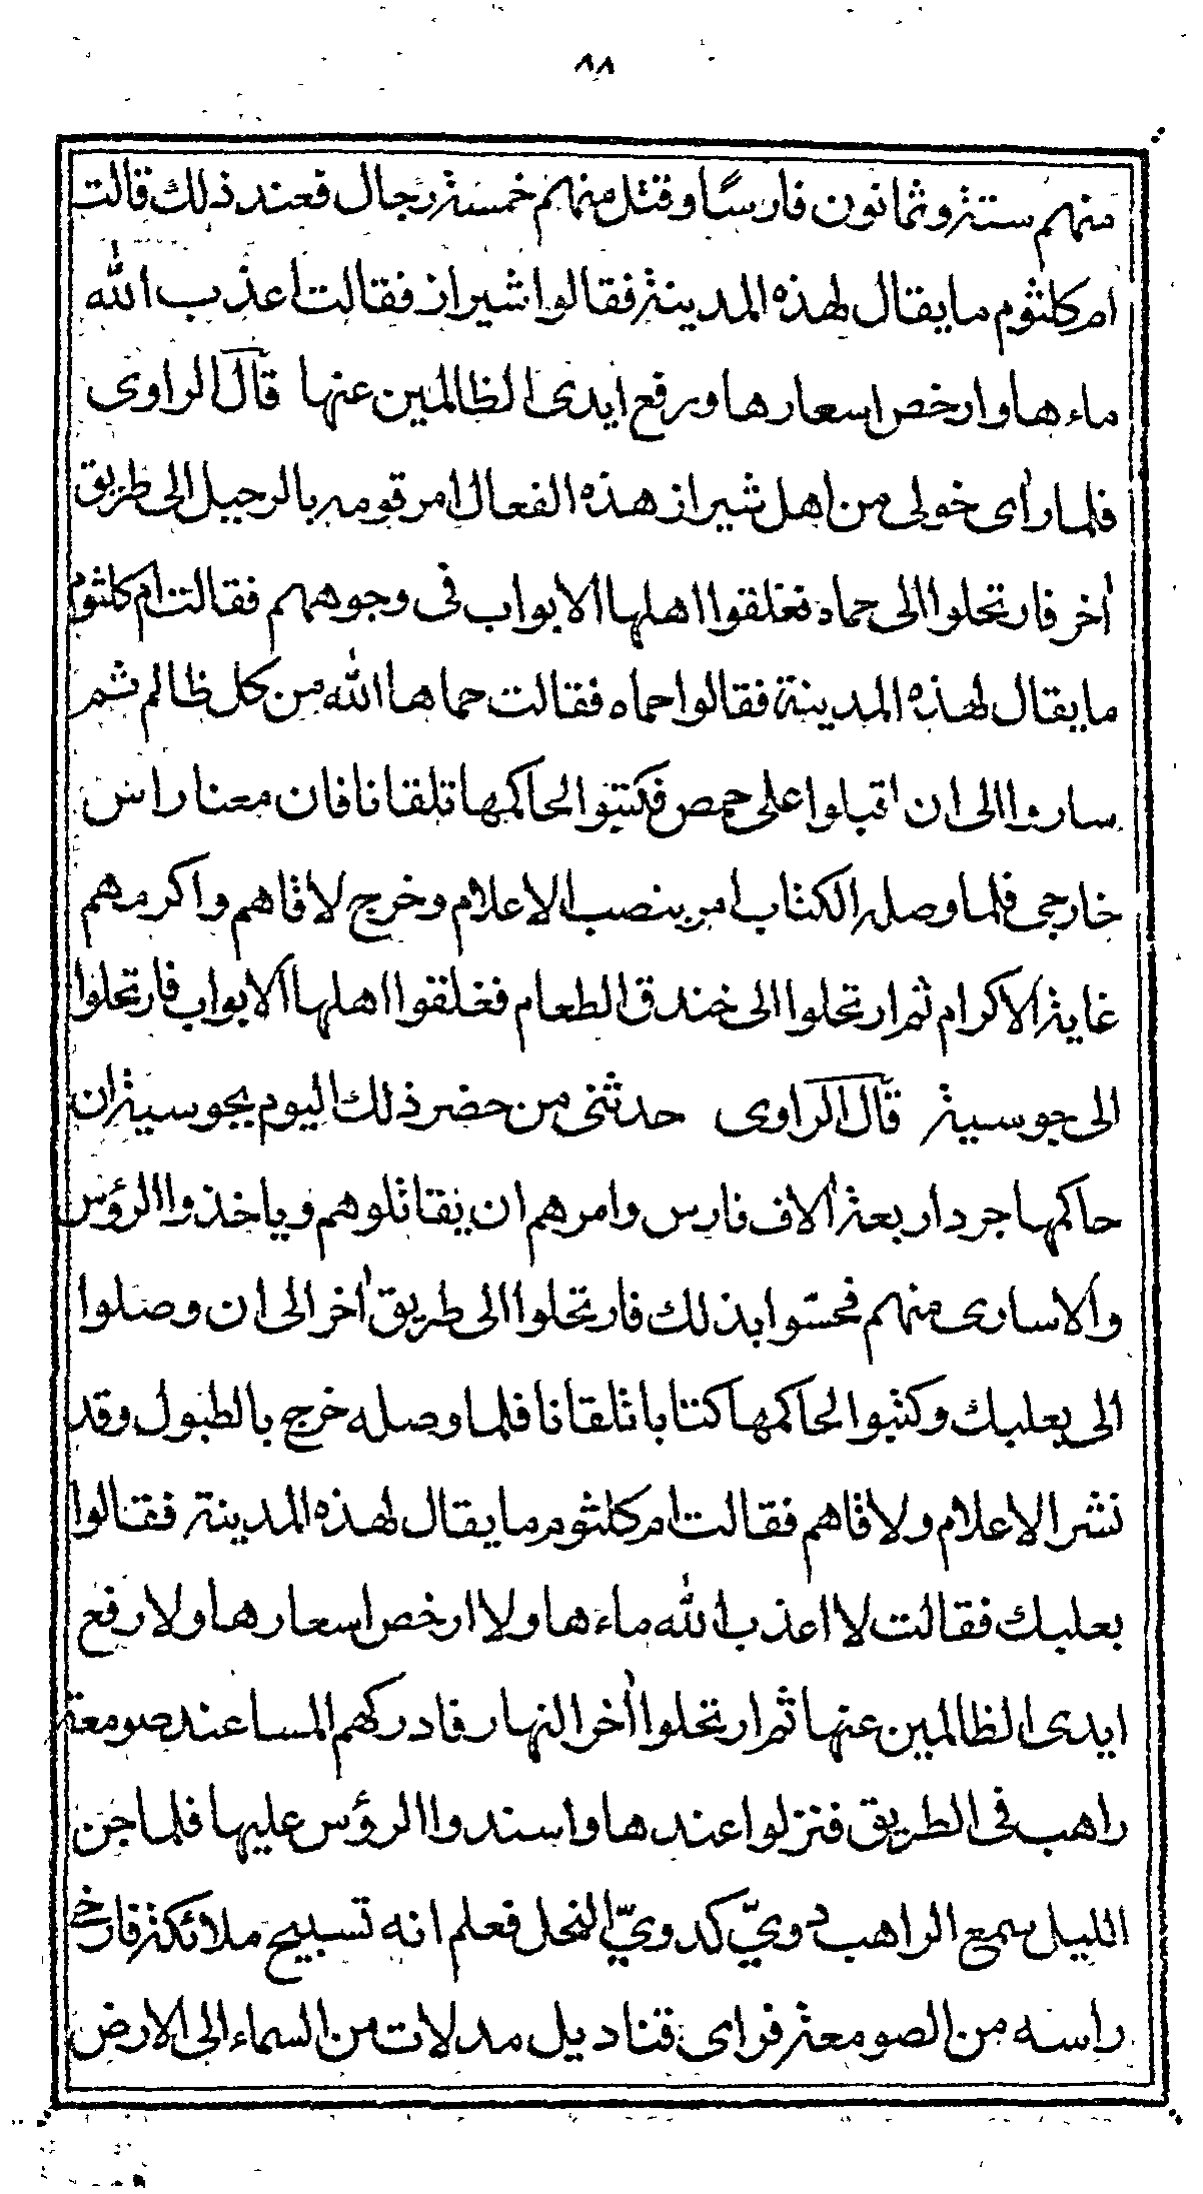 ٨٨
منهم ستة وثمانون فارسًا وقتل منهم خمسة رجال فعند ذلك قالت
ام كلثوم ما يقال لهذه المدينة فقالوا شيراز فقالت اعذب الله
ماءها وارخص اسعارها ورفع ايدى الظالمين عنها قال الراوى
فلما رأى خولى من اهل شيراز هذه الفعال امر قومه بالرحيل الى طريق
أخر فارتحلوا الى حماه فغلقوا اهلها الابواب فى وجوههم فقالت ام كلثوم
ما يقال لهذه المدينة فقالوا حماه فقالت حماها الله من كل ظالم ثم
ساروا الى ان اقبلوا على حمص فكتبوا لحاكمها تلقانا فان معنا راس
خارجى فلما وصله الكتاب امر بنصب الاعلام وخرج لاقاهم واكرمهم
غاية الاكرام ثم ارتحلوا الى خندق الطعام فغلقوا اهلها الابواب فارتحلوا
الى جوسية قال الراوى حدثنى من حضر ذلك اليوم بجوسية ان
حاكمها جرد اربعة ألاف فارس وامرهم ان يقاتلوهم وياخذوا الرؤس
والاسارى منهم فحسّوا بذلك فارتحلوا الى طريق أخر الى ان وصلوا
الى بعلبك وكتبوا لحاكمها كتابا تلقانا فلما وصله خرج بالطبول وقد
نشر الاعلام ولاقاهم فقالت ام كلثوم ما يقال لهذه المدينة فقالوا
بعلبك فقالت لا اعذب الله ماءها ولا ارخص اسعارها ولا رفع
ايدى الظالمين عنها ثم ارتحلوا أخر النهار فادركهم المسا عند صومعة
راهب فى الطريق فنزلوا عندها واسندوا الرؤس عليها فلما جن
الليل سمع الراهب دويّ كدويّ النحل فعلم انه تسبيح ملائكة فارخى
راسه من الصومعة فراى قناديل مدلات من السماء الى الارض